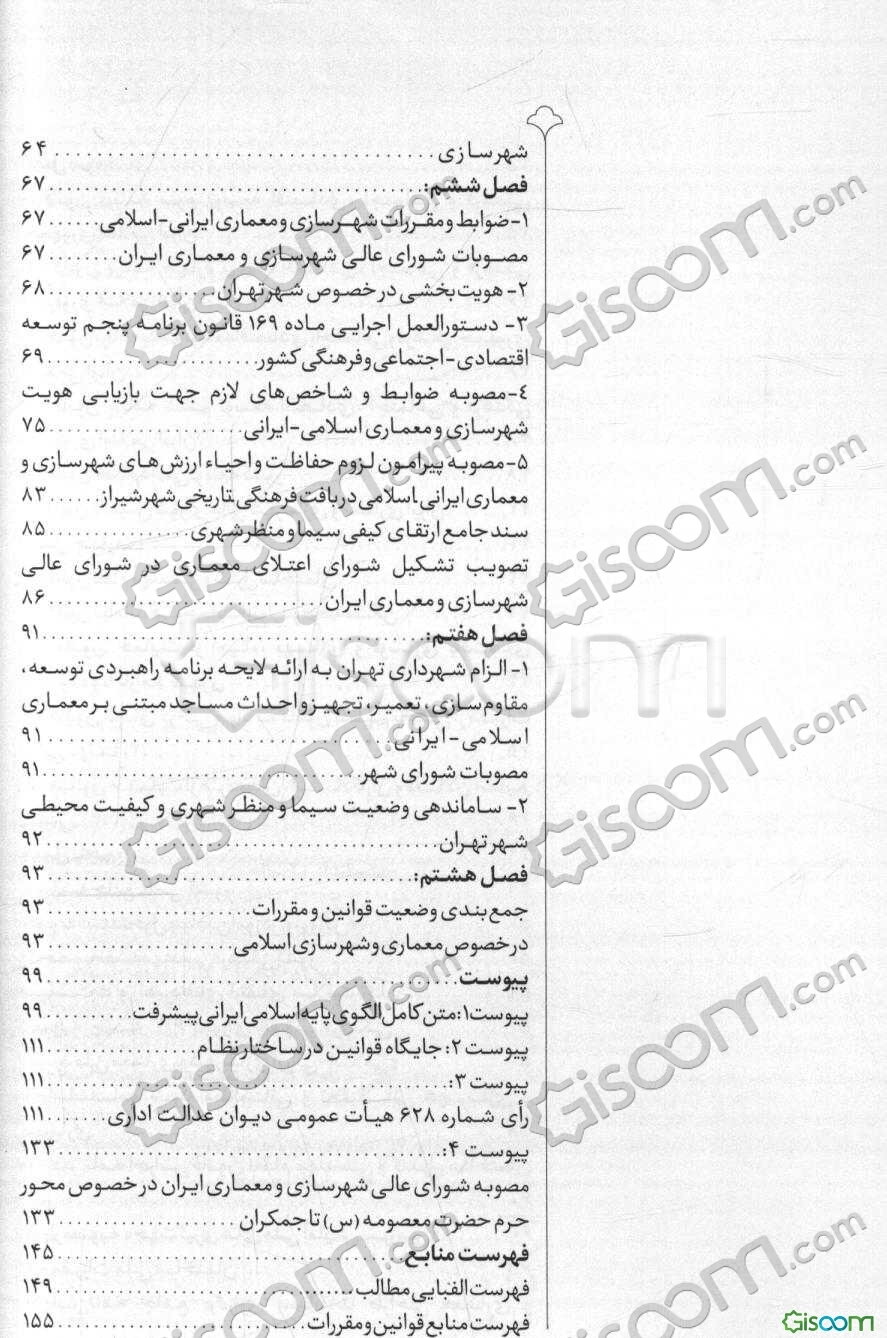 شهرسازی ........ ۶۴
فصل ششم: ........ ۶۷
۱- ضوابط و مقررات شهرسازی و معماری ایرانی - اسلامی ...... ۶۷
مصوبات شورای عالی شهرسازی و معماری ایران ........ ۶۷
۲- هویت‌بخشی در خصوص شهر تهران ........ ۶۸
۳- دستورالعمل اجرایی ماده ۱۶۹ قانون برنامه پنجم توسعه
اقتصادی - اجتماعی و فرهنگی کشور ........ ۶۹
٤- مصوبه ضوابط و شاخص‌های لازم جهت بازیابی هویت
شهرسازی و معماری اسلامی - ایرانی ........ ۷۵
۵- مصوبه پیرامون لزوم حفاظت و احیاء ارزش‌های شهرسازی و
معماری ایرانی ـ اسلامی در بافت فرهنگی ـ تاریخی شهر شیراز ...... ۸۳
سند جامع ارتقای کیفی سیما و منظر شهری ........ ۸۵
تصویب تشکیل شورای اعتلای معماری در شورای عالی
شهرسازی و معماری ایران ........ ۸۶
فصل هفتم: ........ ۹۱
۱- الزام شهرداری تهران به ارائه لایحه برنامه راهبردی توسعه،
مقاوم سازی، تعمیر، تجهیز و احداث مساجد مبتنی بر معماری
اسلامی - ایرانی ........ ۹۱
مصوبات شورای شهر ........ ۹۱
۲- ساماندهی وضعیت سیما و منظر شهری و کیفیت محیطی
شهر تهران ........ ۹۲
فصل هشتم: ........ ۹۳
جمع‌بندی وضعیت قوانین و مقررات ........ ۹۳
در خصوص معماری و شهرسازی اسلامی ........ ۹۳
پیوست ........ ۹۹
پیوست ۱: متن کامل الگوی پایه اسلامی ایرانی پیشرفت ........ ۹۹
پیوست ۲: جایگاه قوانین در ساختار نظام ........ ۱۱۱
پیوست ۳: ........ ۱۱۱
رأی شماره ۶۲۸ هیأت عمومی دیوان عدالت اداری ........ ۱۱۱
پیوست ۴: ........ ۱۳۳
مصوبه شورای عالی شهرسازی و معماری ایران در خصوص محور
حرم حضرت معصومه (س) تا جمکران ........ ۱۳۳
فهرست منابع ........ ۱۴۵
فهرست الفبایی مطالب ........ ۱۴۹
فهرست منابع قوانین و مقررات ........ ۱۵۵
Gisoom.com
Gisoom